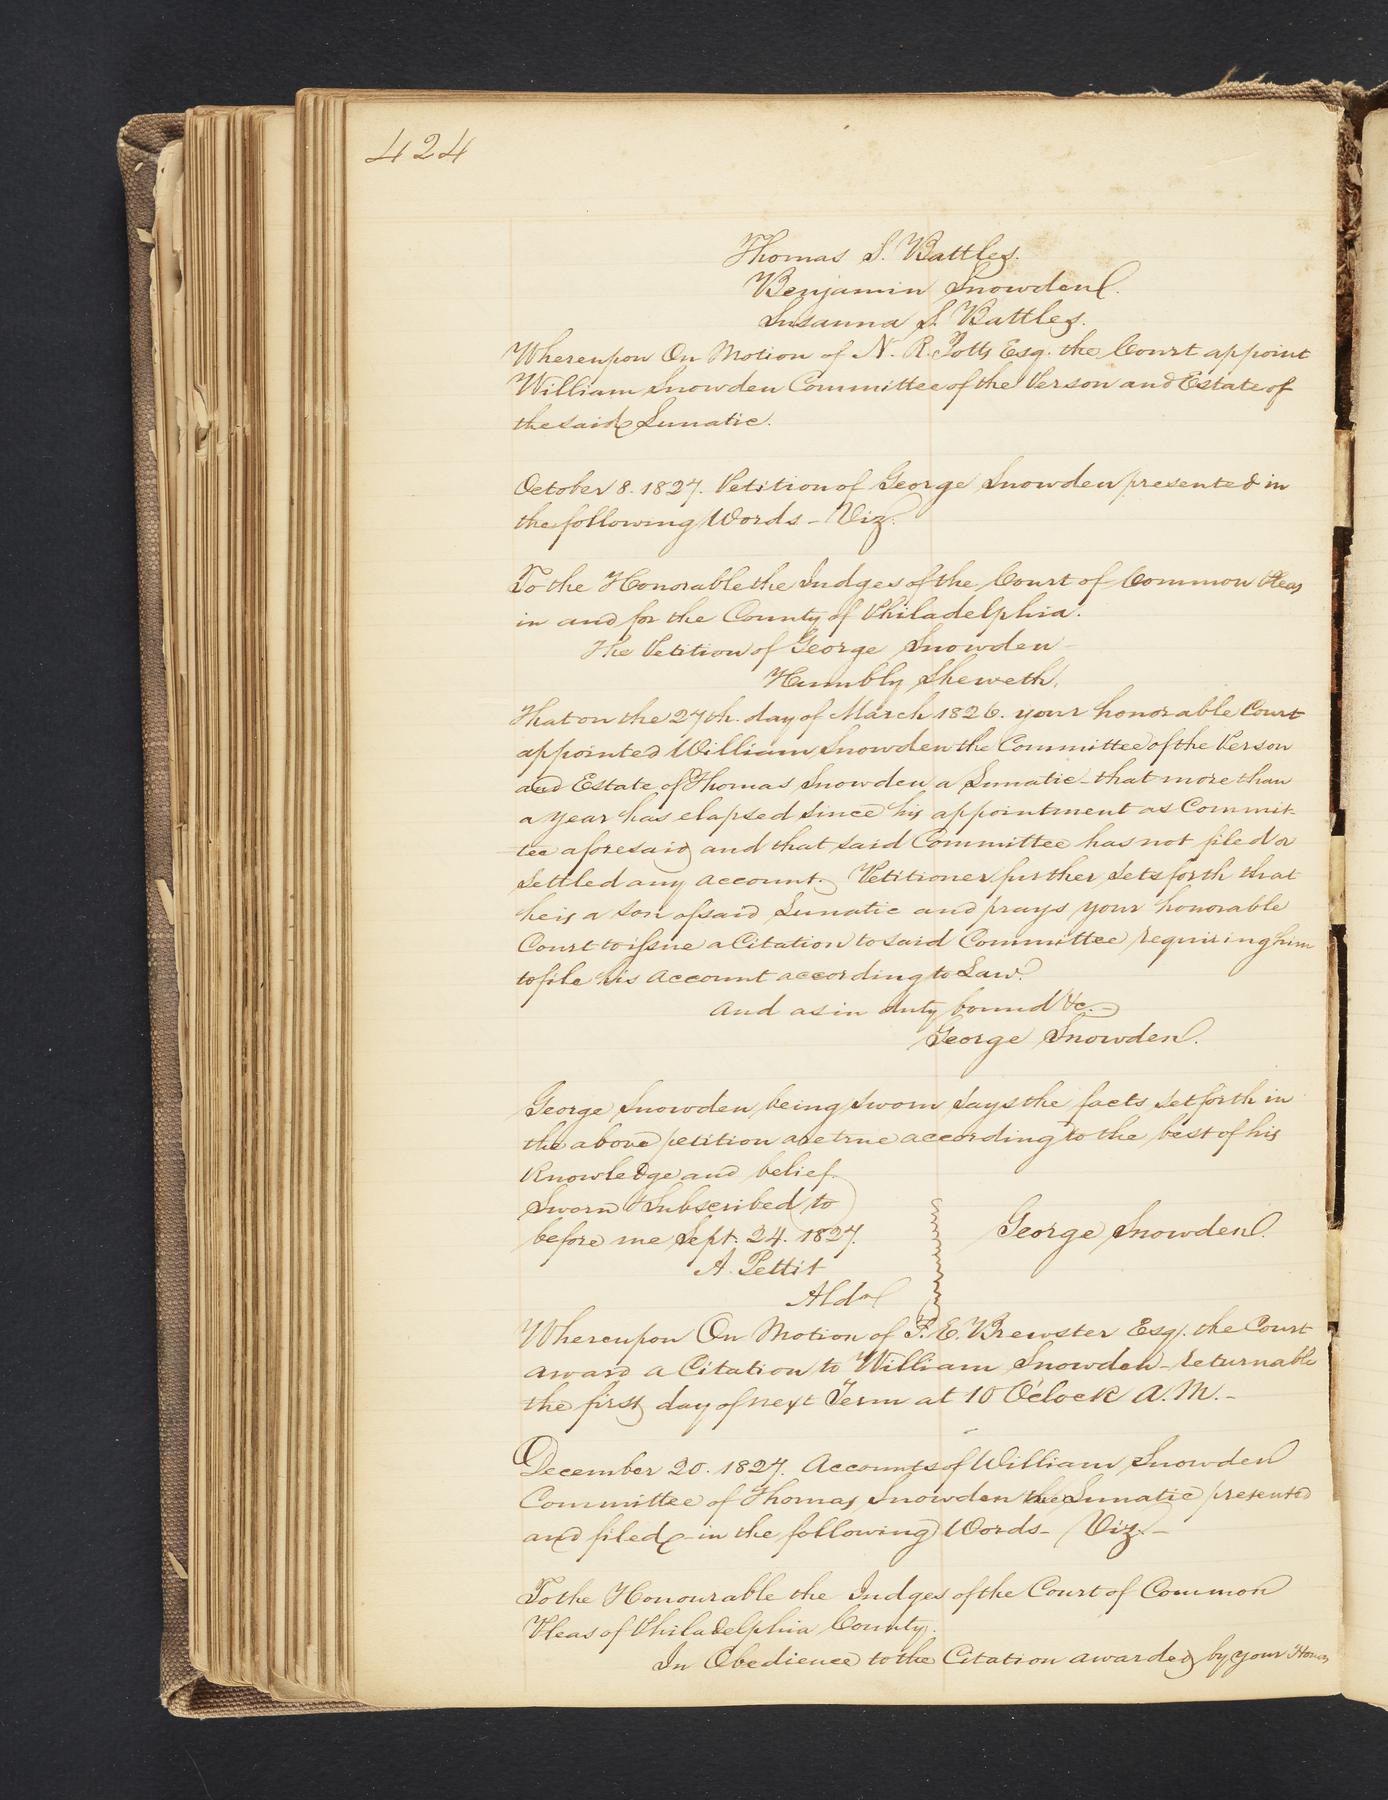 424
Thomas S. Battles.
Benjamin Snowden.
Susanna S. Battles.
Whereupon On Motion of N. R. Potts Esq. the Court appoint
William Snowden Committee of the Person and Estate of
the said Lunatic.
October 8. 1827. Petition of George Snowden presented in
the following Words - Viz.
To the Honorable the Judges of the Court of Common Pleas
in and for the County of Philadelphia.
The Petition of George Snowden
Humbly Sheweth,
That on the 27th. day of March 1826. your honorable Court
appointed William Snowden the Committee of the Person
and Estate of Thomas Snowden a Lunatic - that more than
a year has elapsed since his appointment as Commit-
tee aforesaid and that said Committee has not filed or
settled any account. Petitioner further sets forth that
he is a son of said Lunatic and prays your honorable
Court to issue a Citation to said Committee requiring him
to file his account according to Law.
And as in duty bound &c. -
George Snowden.
George Snowden being sworn says the facts set forth in
the above petition are true according to the best of his
Knowledge and belief.
Sworn & Subscribed to
before me Sept. 24. 1827.
George Snowden.
A. Pettit
Aldn
Whereupon On Motion of F. E. Brewster Esq. the Court
award a Citation to William Snowden - returnable
the first day of next Term at 10 O'clock A. M. -
December 20. 1827. Accounts of William Snowden
Committee of Thomas Snowden the Lunatic presented
and filed - in the following Words - Viz. -
To the Honourable the Judges of the Court of Common
Pleas of Philadelphia County.
In Obedience to the Citation awarded by your Honors